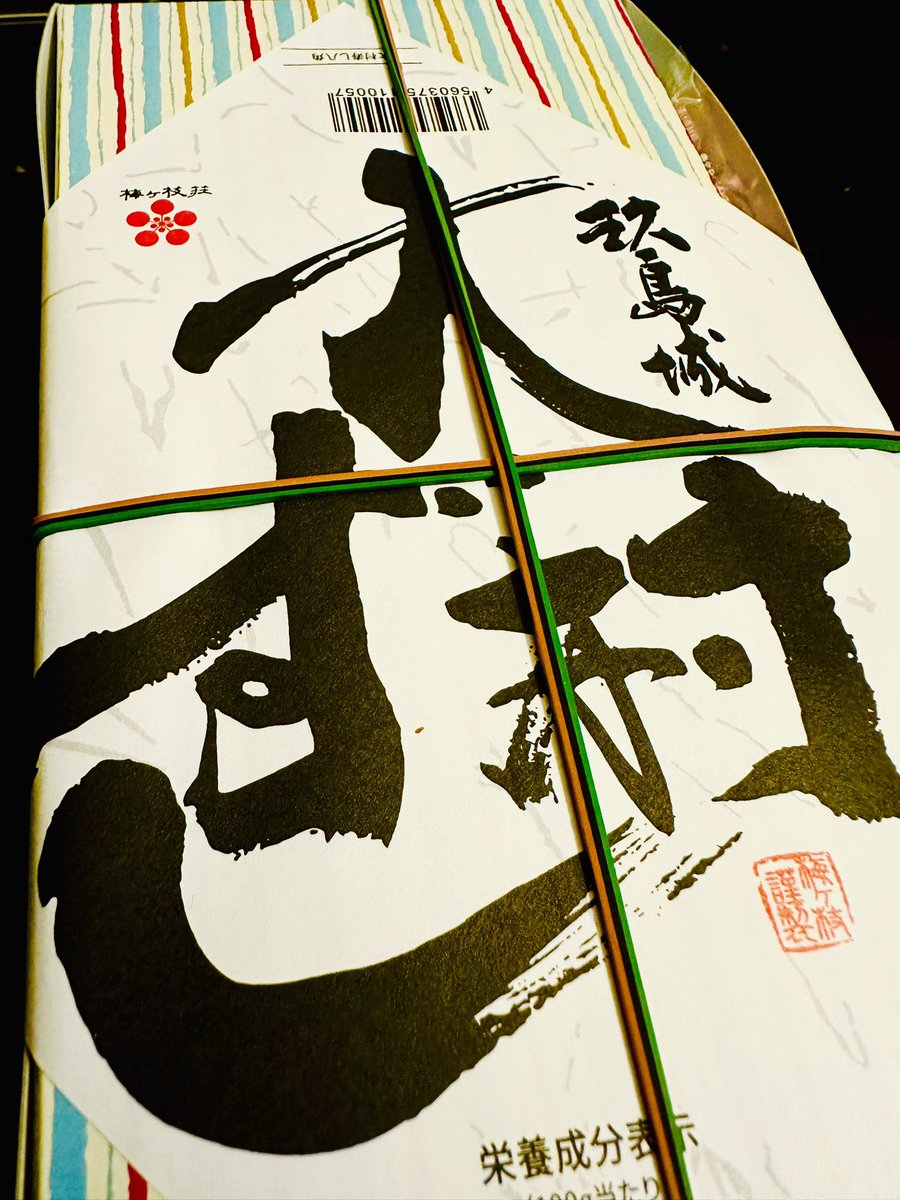 大村寿し八角
4 560375 110057
梅ヶ枝荘
玖島城
大村
ずし
梅ヶ枝
謹製
栄養成分表示
(100g当たり